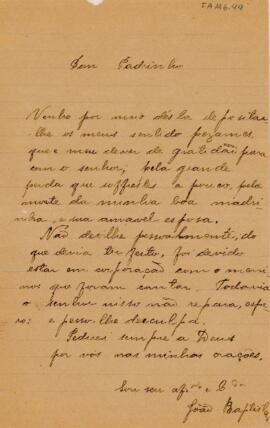 FAM6.49
Bom Padrinho
Venho por meio désta depositar
lhe os meus sentido pezames
que é meu dever de gratidão para
com o senhor, pela grande
perda que soffrestes a pouco, pela
morte da minha boa madri
nha, e sua amavel esposa.
Não dei-lhe pessoalmente, do
que devia ter feito, foi devido
estar em corporação com o meni
nos que foram cantar. Todavia
o senhor nisso não repara, espe
ro: e pesso-lhe desculpá.
Pederei sempre a Deus
por vos nas minhas orações.
Sou seu af. e C.
João Baptista